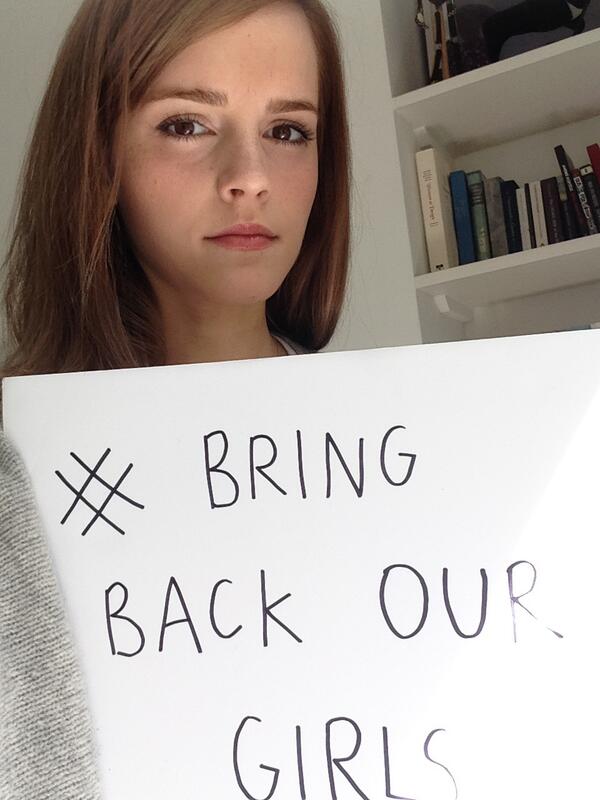 # BRING
BACK OUR
GIRLS